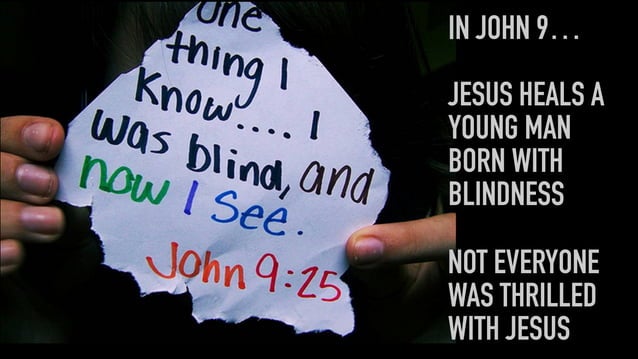 one
thing I
know.... I
was blind, and
now I see.
John 9:25
IN JOHN 9...
JESUS HEALS A
YOUNG MAN
BORN WITH
BLINDNESS
NOT EVERYONE
WAS THRILLED
WITH JESUS